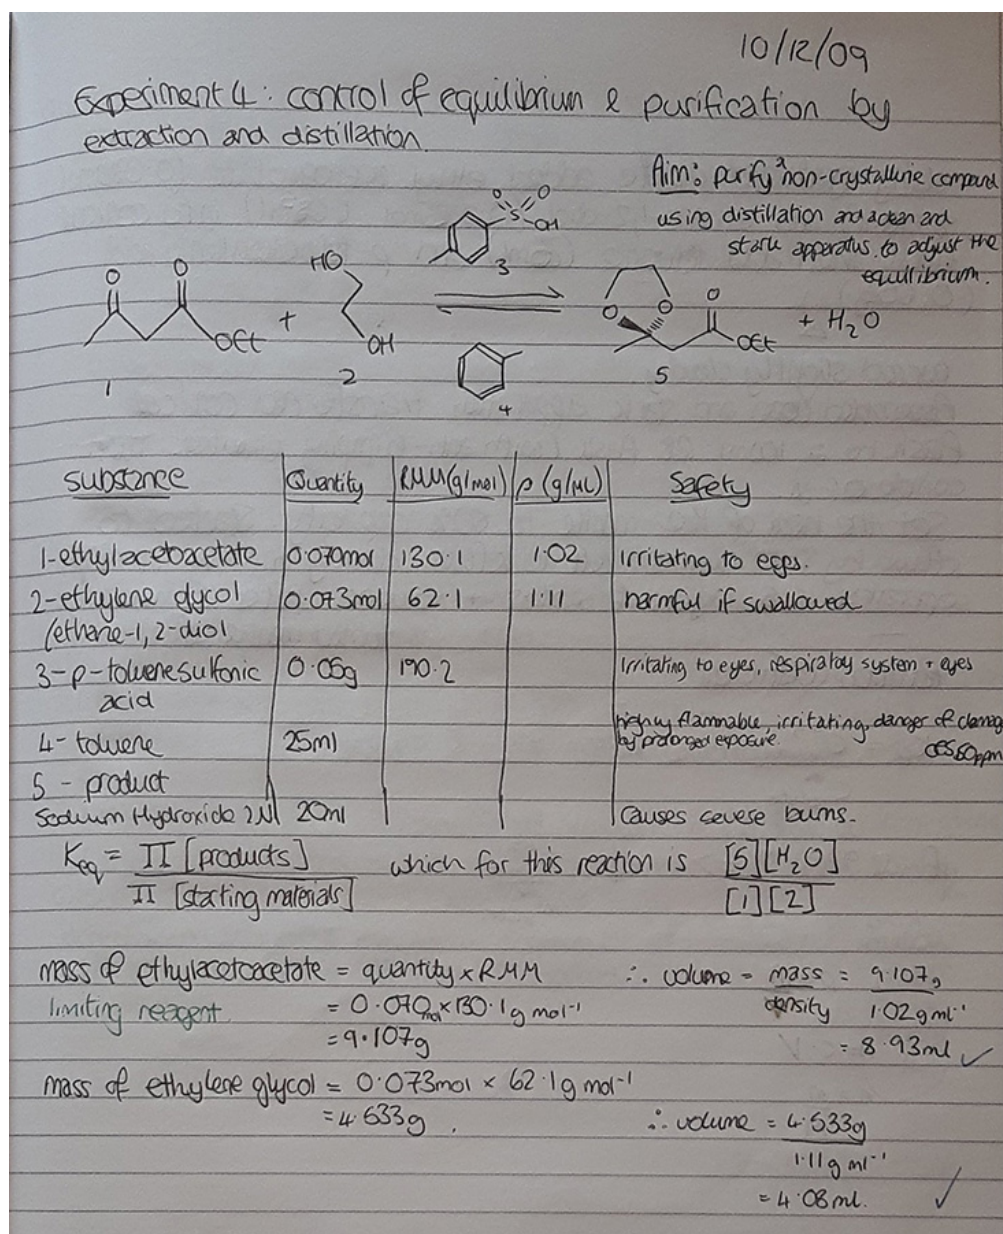 10/12/09
Experiment 4: control of equilibrium & purification by
extraction and distillation.
Aim: purify a non-crystalline compound
using distillation and a dean and
stark apparatus to adjust the
equillibrium.
O O
OEt
1
+
HO
OH
2
O O
S
OH
3
4
O O
O
OEt
5
+ H2O
substance Quantity RMM(g/mol) ρ (g/mL) Safety
1-ethylacetoacetate 0.070mol 130.1 1.02 irritating to eyes.
2-ethylene glycol 0.073mol 62.1 1.11 harmful if swallowed
(ethane-1,2-diol
3-p-toluenesulfonic 0.05g 190.2 Irritating to eyes, respiratory system + eyes
acid
highly flammable, irritating, danger of damage
4-toluene 25ml by prolonged exposure. OES 50ppm
5 - product
Sodium Hydroxide 2N 20ml causes severe burns.
Keq = Π [products] / Π [starting materials] which for this reaction is [5][H2O] / [1][2]
mass of ethylacetoacetate = quantity x RMM ∴ volume = mass / density = 9.107g / 1.02g ml⁻¹
limiting reagent = 0.070mol x 130.1g mol⁻¹
= 9.107g = 8.93ml ✓
mass of ethylene glycol = 0.073mol x 62.1g mol⁻¹
= 4.533g. ∴ volume = 4.533g / 1.11g ml⁻¹
= 4.08ml. ✓